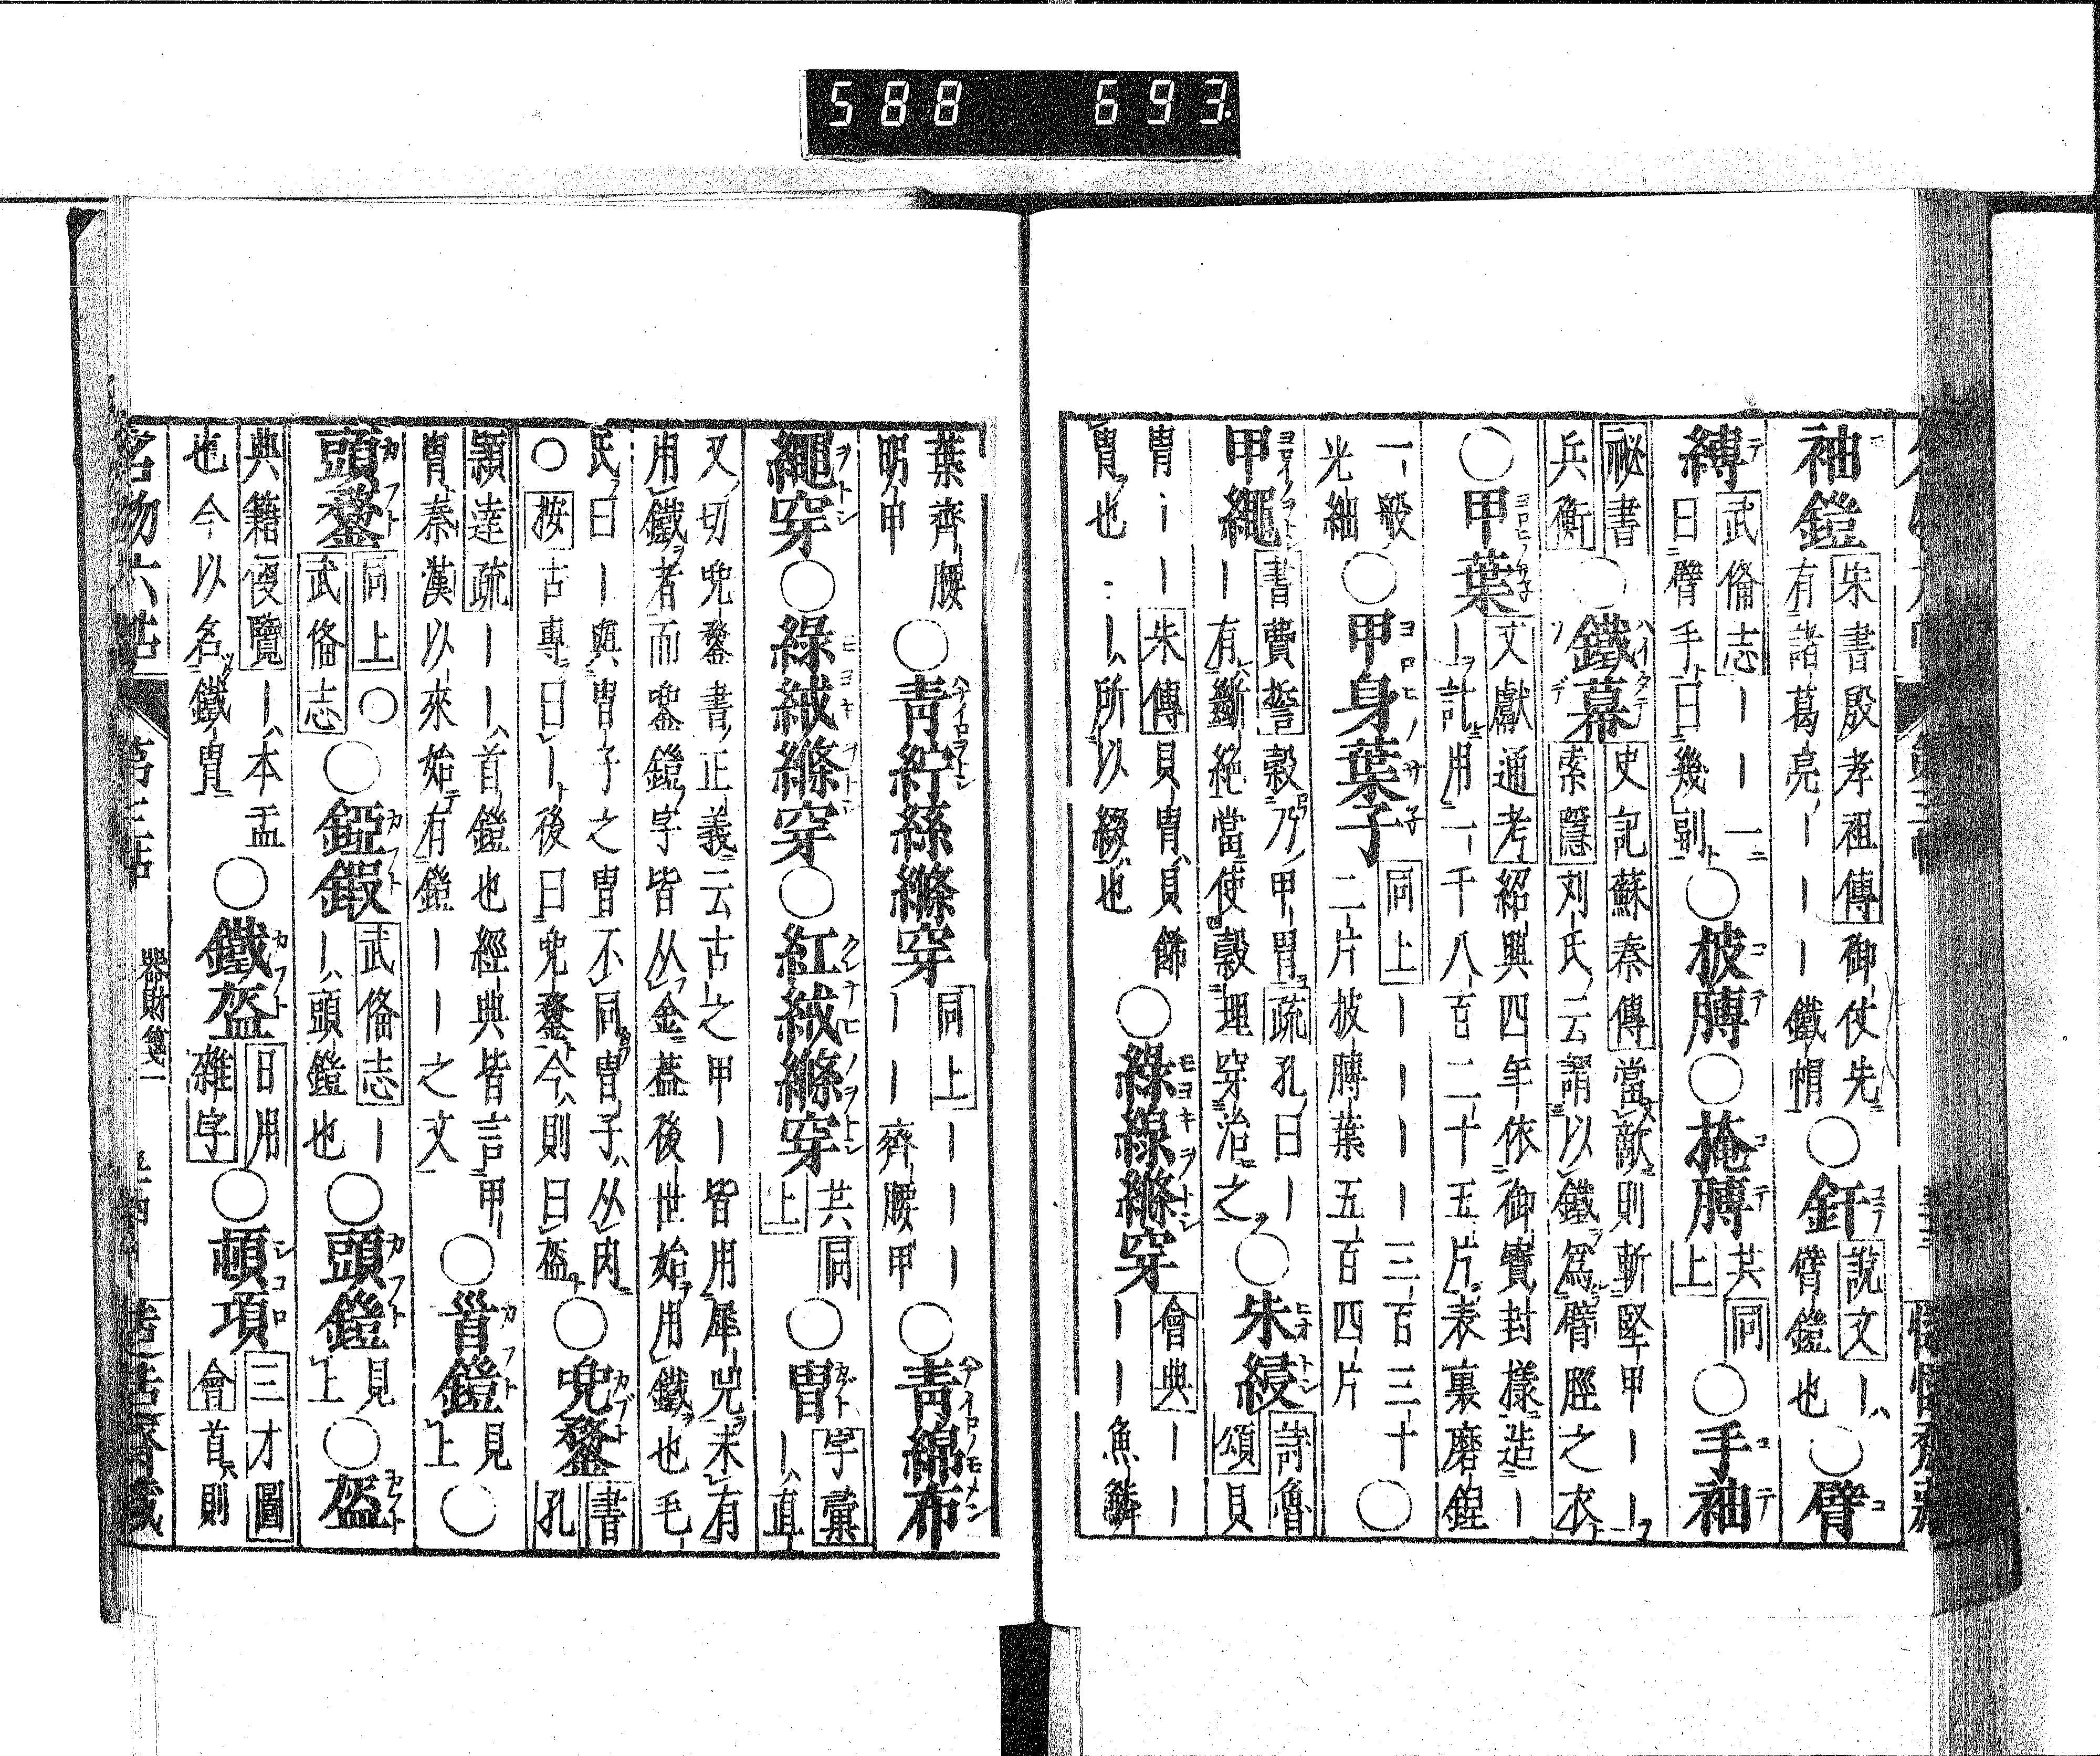 588 693
袖鎧 宋書殷孝祖傳 御仗先
有諸葛亮｜｜｜鐵帽 ○釬 說文 ｜
臂鎧也 ○臂
縛 武備志 ｜｜一
曰臂手曰幾副 ○披膊 ○掩膊 共同
上 ○手袖
祕書
兵衡 ○鐵幕 史記蘇秦傳 當敵則斬堅甲｜｜
索隱 刘氏云謂以鐵爲臂脛之衣
○甲葉 文獻通考 紹興四年依御寶封樣造｜
｜計用一千八百二十五片表裏磨鋥
一般
光紬 ○甲身葉子 同上 ｜｜｜｜三百三十
二片披膊葉五百四片 ○
甲繩 書費誓 穀乃甲胃 疏 孔曰｜
｜有斷絕當使穀理穿治之 ○朱綅 詩魯
頌 貝
胄｜｜ 朱傳 貝胄貝飾
胄也｜所以綴也 ○綠線縧穿 會典 ｜｜
｜｜｜魚鱗
葉齊腰
明甲 ○靑紵絲縧穿 同上 ｜｜｜
｜｜齊腰甲 ○靑綿布
繩穿 ○綠絨縧穿 ○紅絨縧穿 共同
上 ○胄 字彙
｜直
又切兜鍪書正義云古之甲｜皆用犀兕未有
用鐵者而鍪鎧字皆从金蓋後世始用鐵也毛
氏曰｜與胄子之胄不同胄子从肉
○按 古專曰｜後曰兜鍪今則曰盔 ○兜鍪 書
孔
穎達疏 ｜｜首鎧也經典皆言甲
胄秦漢以來始有鎧｜｜之文 ○首鎧 見
上 ○
頭鍪 同上 ○
武備志 ○錏鍜 武備志 ｜
｜頭鎧也 ○頭鎧 見
上 ○盔
典籍便覽 ｜本盂
也今以名鐵胄 ○鐵盔 日用
雜字 ○頓項 三才圖
會 首則
名物六帖 第三帖 器財箋一